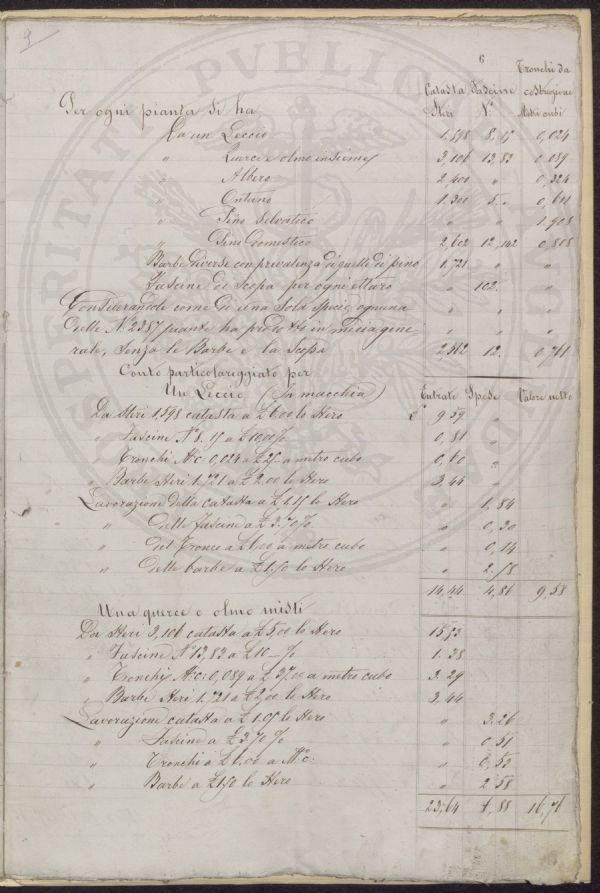 9
6
Tronchi da
Catasta Fascine costruzione
Per ogni pianta si ha Steri N.° Metri cubi
Da un Leccio 1,598 8,15 0,024
" Querce e olmo insieme 3,106 13,83 0,089
" Albero 2,400 " 0,324
" Ontano 1,300 5 " 0,611
" Pino Selvatico " " 1,908
" Pino Domestico 2,602 12,142 0,808
Barbe diverse con prevalenza di quelle di pino 1,721 " "
Fascine di Scopa per ogni Staro " 102. "
Considerandole come di una sola specie, ognuna " " "
delle N. 2387 piante ha prodotto in media gene " " "
rale, senza le Barbe e la Scopa 2,312 12. 0,761
Conto particolareggiato per
Un Leccio (In macchia) Entrate Spese Valore netto
Da Steri 1,598 catasta a £6.00 lo Stero £ 9,59 "
" Fascine N.° 8.15 a £10,00 % 0,81 "
" Tronchi M.c: 0,024 a £25 – a metro cubo 0,60 "
" Barbe Steri 1.721 a £2.00 lo Stero 3,44 "
Lavorazione della catasta a £1.15 lo Stero " 1,84
" delle fascine a £3.70 % " 0,30
" del Tronco a £6.00 a metro cubo " 0,14
" delle barbe a £1.50 lo Stero " 2,58
14,44 4,86 9,58
Una querce e olmo misti
Da Steri 3,106 catasta a £5,00 lo Stero 15,53
" Fascine N.° 13,83 a £10 – % 1.38
" Tronchi M.c: 0,089 a £37.00 a metro cubo 3.29
" Barbe Steri 1.721 a £2,00 lo Stero 3,44
Lavorazione catasta a £1.05 lo Stero " 3,26
" Fascine a £3.70 % " 0,51
" Tronchi a £6.00 a M.c: " 0,53
" Barbe a £1.50 lo Stero " 2 58
23,64 6,88 16,76
PROSPERITATI PUBLICAE